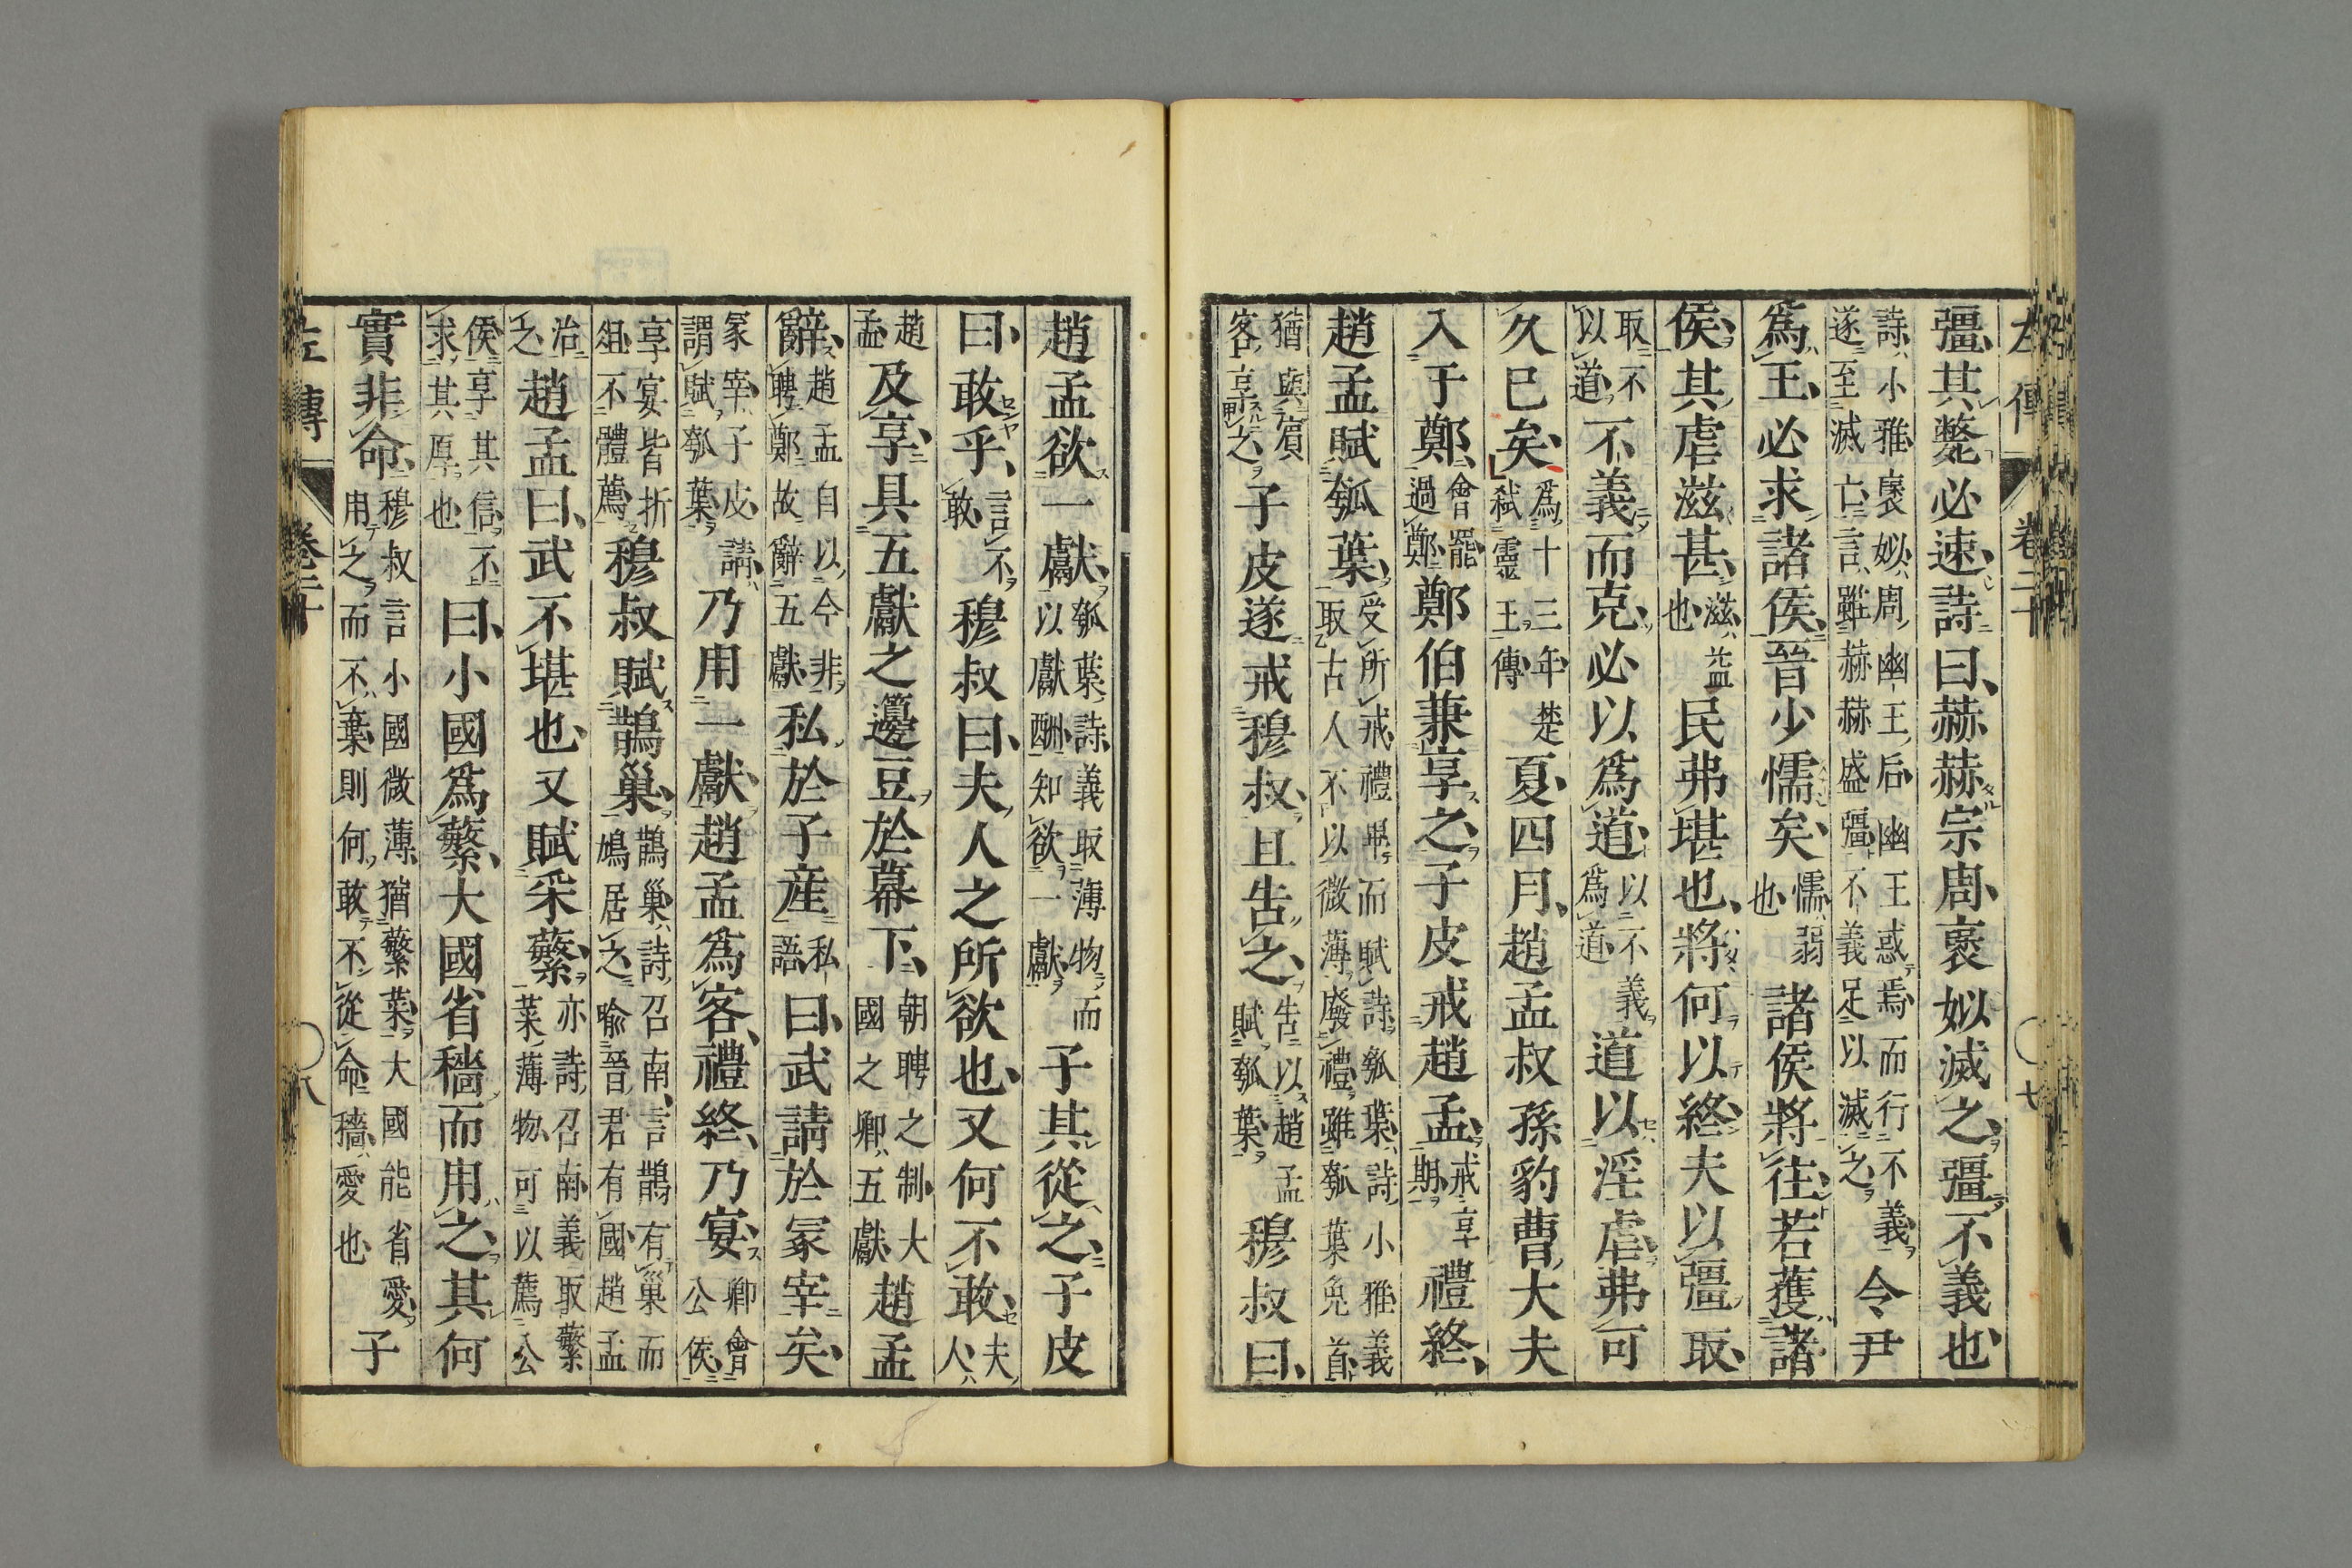 左傳 卷二十 七
彊其斃必速詩曰赫赫宗周褒姒滅之彊不義也
詩小雅褒姒周幽王后幽王惑焉而行不義遂至滅亡言雖赫赫盛彊不義足以滅之令尹
爲王必求諸侯晉少懦矣懦弱也諸侯將往若獲諸
侯其虐滋甚滋益也民弗堪也將何以終夫以彊取
取不以道不義而克必以爲道以不義爲道道以淫虐弗可
久已矣爲十三年楚弑靈王傳夏四月趙孟叔孫豹曹大夫
入于鄭會罷過鄭鄭伯兼享之子皮戒趙孟戒享期禮終
趙孟賦瓠葉受所戒禮畢而賦詩瓠葉詩小雅義取古人不以微薄廢禮雖瓠葉兔首
猶與賓客享之子皮遂戒穆叔且告之告以趙孟賦瓠葉穆叔曰
趙孟欲一獻瓠葉詩義取薄物而以獻酬知欲一獻子其從之子皮
曰敢乎言不敢穆叔曰夫人之所欲也又何不敢夫人
趙孟及享具五獻之籩豆於幕下朝聘之制大國之卿五獻趙孟
辭趙孟自以今非聘鄭故辭五獻私於子產私語曰武請於冢宰矣
冢宰子皮請謂賦瓠葉乃用一獻趙孟爲客禮終乃宴卿會公侯
享宴皆折俎不體薦穆叔賦鵲巢鵲巢詩召南言鵲有巢而鳩居之喻晉君有國趙孟
治之趙孟曰武不堪也又賦采蘩亦詩召南義取蘩菜薄物可以薦公
侯享其信不求其厚也曰小國爲蘩大國省穡而用之其何
實非命穆叔言小國微薄猶蘩菜大國能省愛用之而不棄則何敢不從命穡愛也子
左傳 卷二十 八